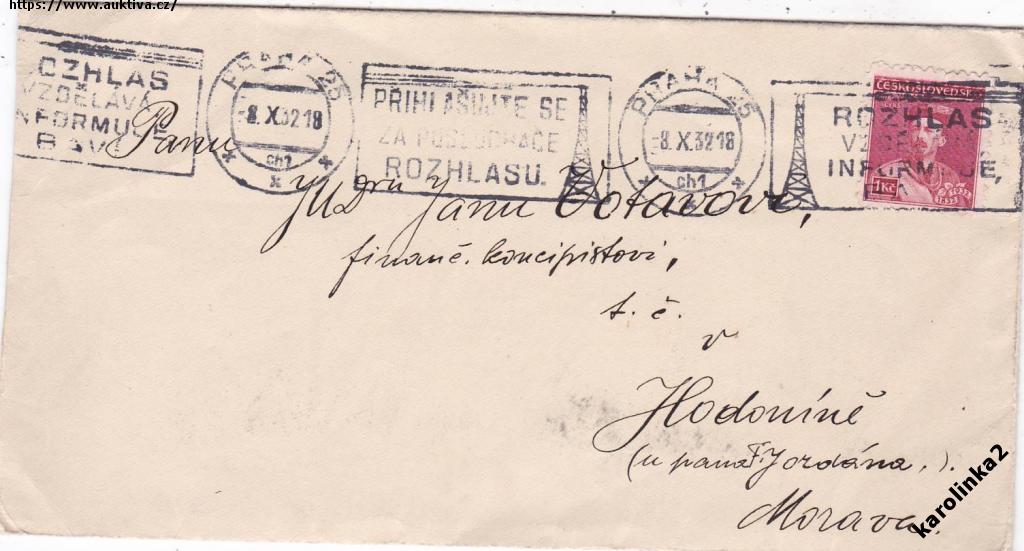 https://www.auktiva.cz/
OZHLAS
VZDĚLÁVÁ
NFORMUJE
BAVÍ
PRAHA 25
-8.X.32 18
ch1
PŘIHLAŠUJTE SE
ZA POSLUCHAČE
ROZHLASU.
PRAHA 25
-8.X.32 18
ch1
ROZHLAS
VZDĚLÁVÁ
INFORMUJE,
ČESKOSLOVENSKO
1Kč
1932
Panu
JUDru Janu Votavovi,
finanč. koncipistovi,
t. č.
v
Hodoníně
(u pana F. Jordána.).
Morava.
karolinka2